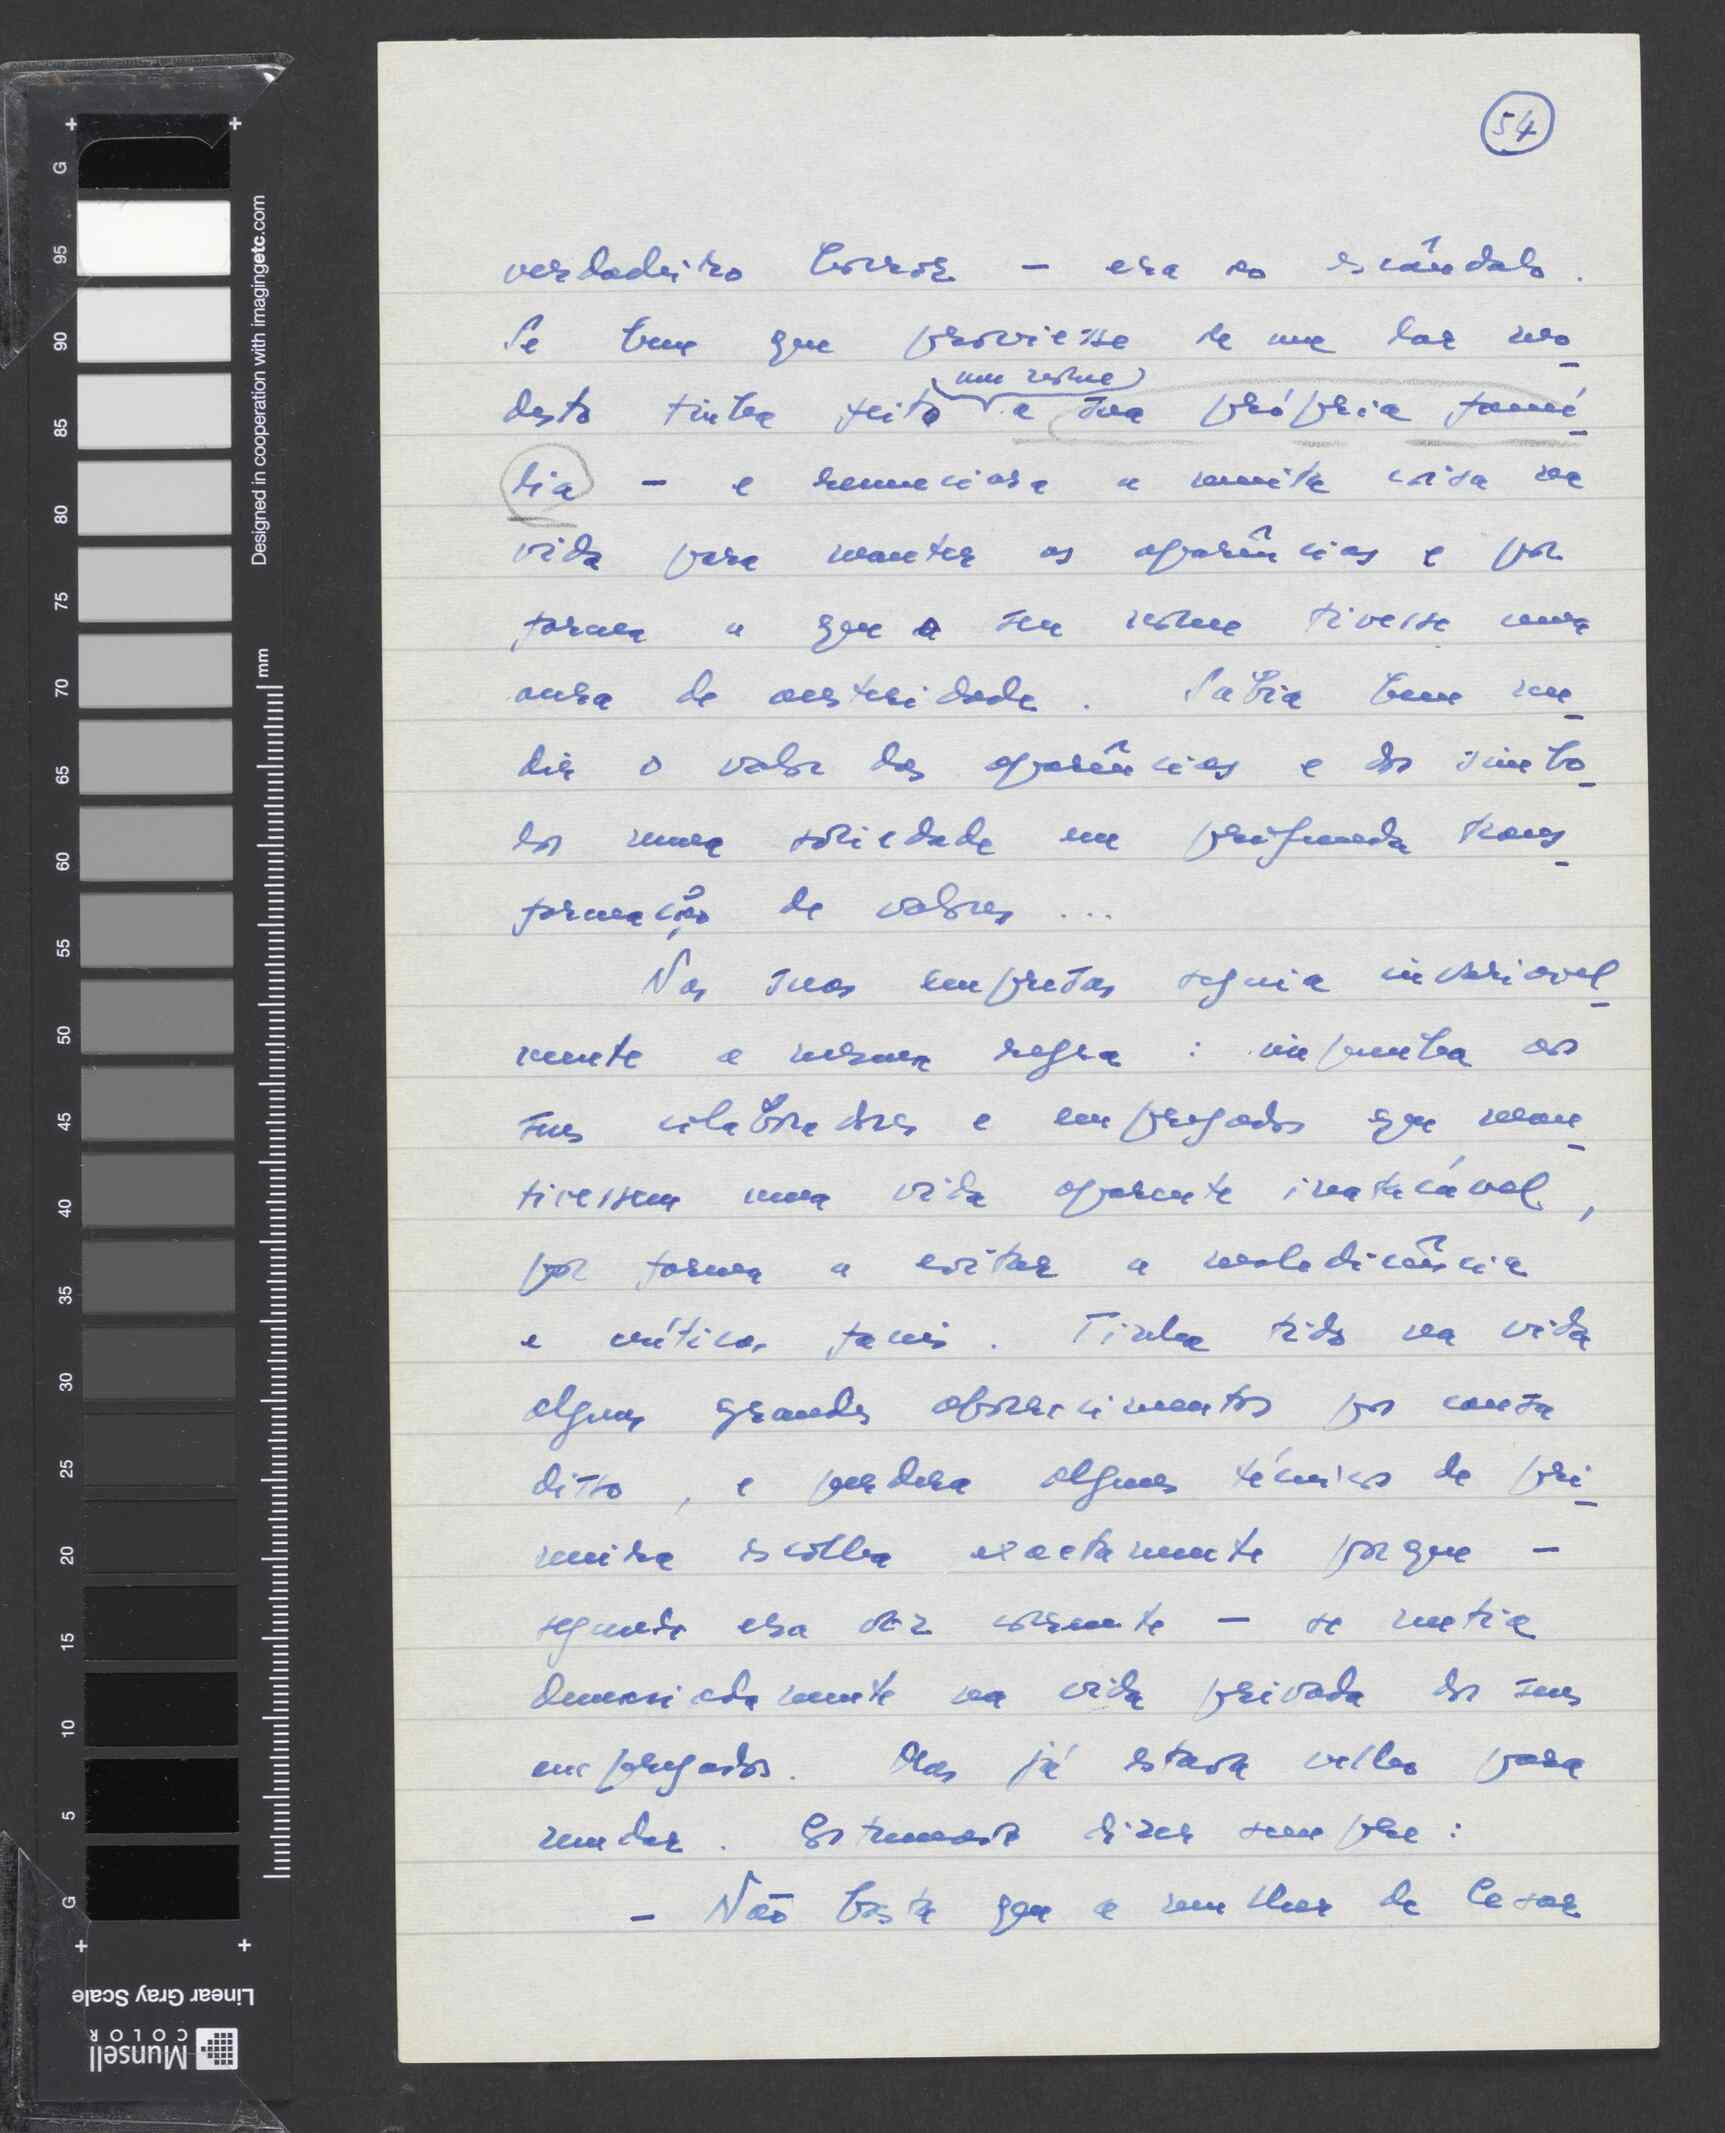 54
verdadeiro horror — era ao escândalo.
Se bem que proviesse de um lar mo-
desto tinha feito um nome a sua própria famí-
lia — e renunciara a muita coisa na
vida para manter as aparências e por
forma a que o seu nome tivesse uma
aura de austeridade. Sabia bem me-
dir o valor das aparências e dos símbo-
los numa sociedade em profunda trans-
formação de valores...
Nas suas empresas seguia invariavel-
mente a mesma regra: impunha aos
seus colaboradores e empregados que man-
tivessem uma vida aparente inatacável,
por forma a evitar a maledicência
e críticas fáceis. Tinha tido na vida
alguns grandes aborrecimentos por causa
disso, e perdera alguns técnicos de pri-
meira escolha exactamente porque —
segundo era voz corrente — se metia
demasiadamente na vida privada dos seus
empregados. Mas já estava velho para
mudar. Costumava dizer sempre:
— Não basta que a mulher de Cesar
Designed in cooperation with imagingetc.com
mm
G 95 90 85 80 75 70 65 60 55 50 45 40 35 30 25 20 15 10 5 G
Linear Gray Scale
Munsell
COLOR